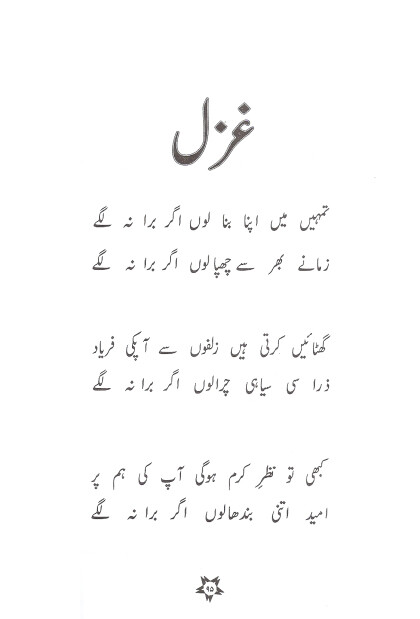 غزل
تمہیں میں اپنا بنا لوں اگر برا نہ لگے
زمانے بھر سے چھپا لوں اگر برا نہ لگے
گھٹائیں کرتی ہیں زلفوں سے آپکی فریاد
ذرا سی سیاہی چرالوں اگر برا نہ لگے
کبھی تو نظرِ کرم ہوگی آپ کی ہم پر
امید اتنی بندھالوں اگر برا نہ لگے
۹۵